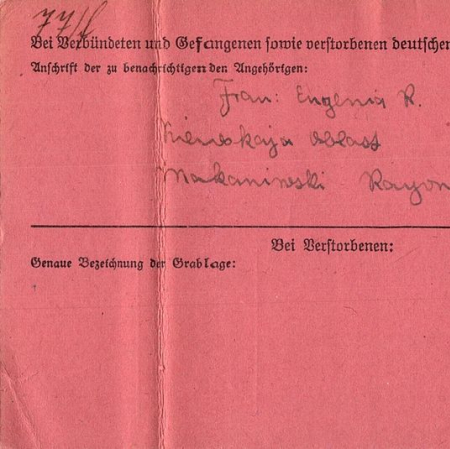 Bei Verbündeten und Gefangenen sowie verstorbenen deutschen
Anschrift der zu benachrichtigenden Angehörigen:
Frau: Eugenia R.
Kiewskaja Oblast
Makaniwski Rayon
Bei Verstorbenen:
Genaue Bezeichnung der Grablage: